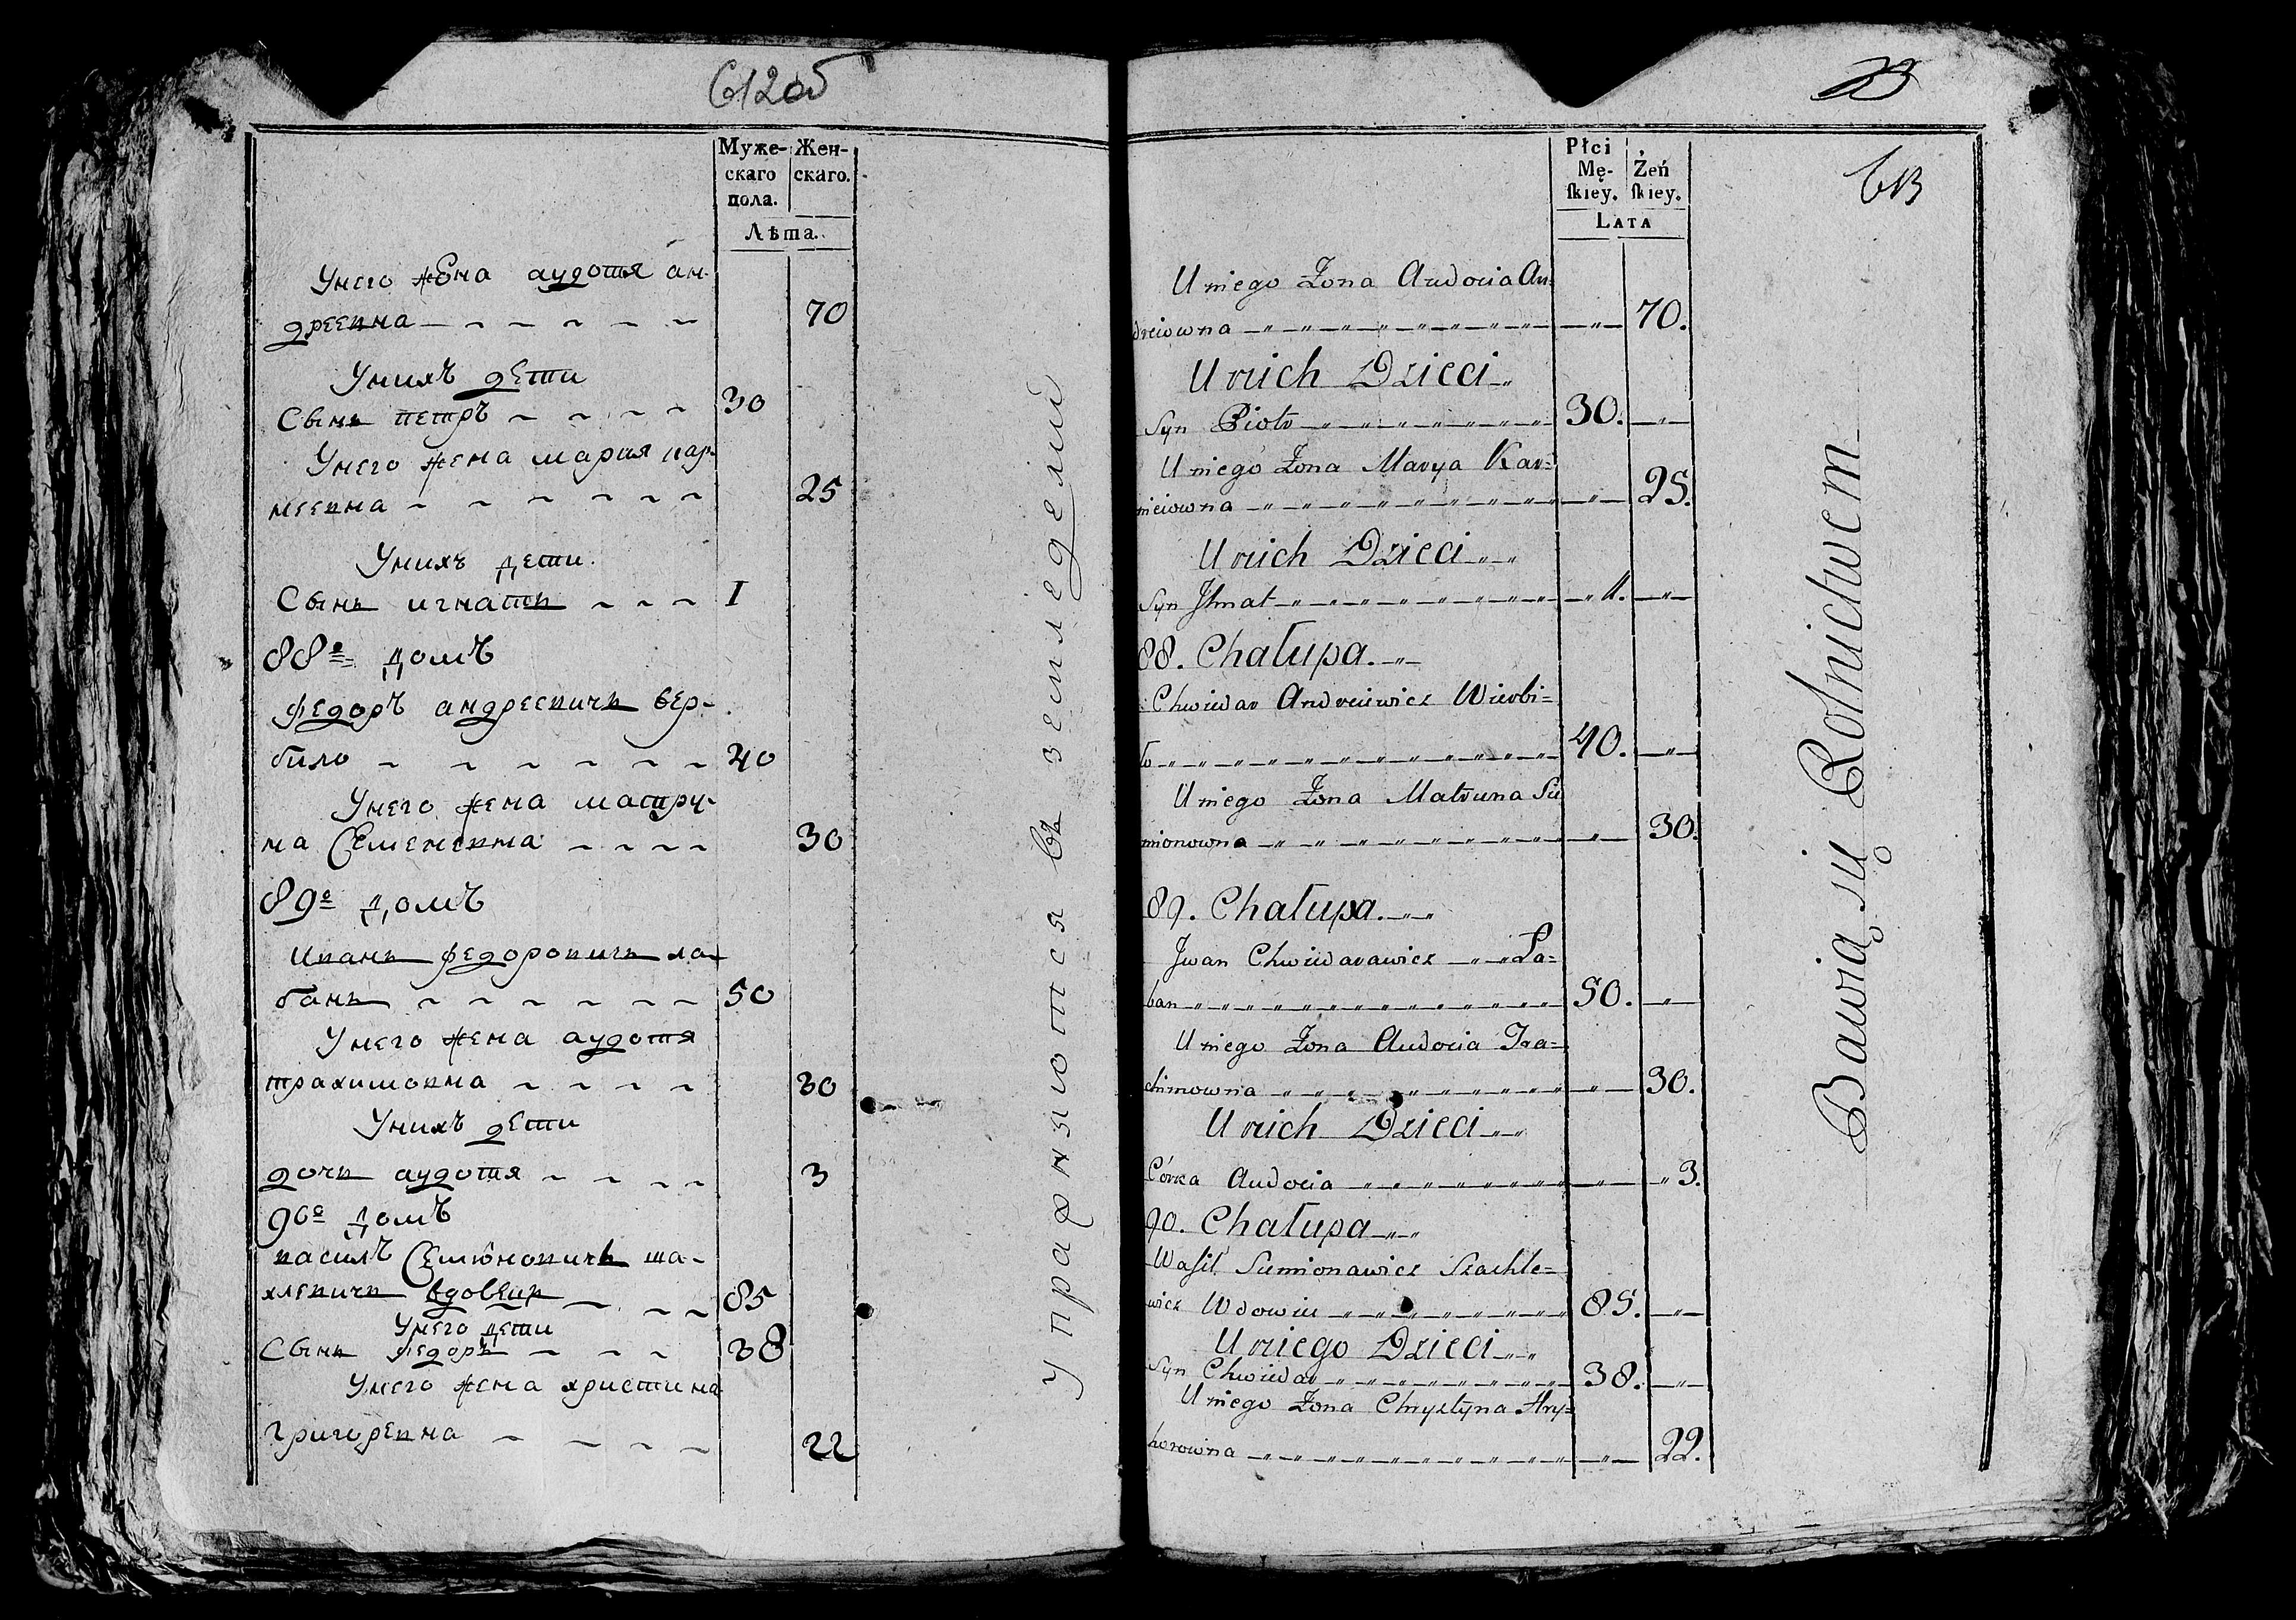 612об
Муже-
скаго
пола.
Жен-
скаго.
Лѣта.
Унего жена аудотя ан-
дреевна
70
Унихъ дети
Сынъ петръ
30
Унего жена мария кар-
неевна
25
Унихъ дети.
Сынъ игнатъ
I
88е домъ
федоръ андреевичъ вер-
било
40
Унего жена матру-
на Семеневна
30
89е домъ
Иванъ федоровичъ ла-
банъ
50
Унего жена аудотя
трахимовна
30
Унихъ дети
дочъ аудотя
3
90е домъ
василъ Семіоновичъ ша-
хлевичъ вдовецъ
85
Унего дети
Сынъ федоръ
38
Унего жена христина
григоревна
22
упражняются въ земледелии
23
613
Płci
Mę-
skiey.
Żeń
skiey.
LATA
U niego Żona Audocia An=
dreiowna
70.
U nich Dzieci
Syn Piotr
30.
U niego Żona Marya Kar=
nieiowna
25.
U nich Dzieci
Syn Ihnat
1.
88. Chałupa.
Chwiedar Andreiewicz Wierbi=
ło
40.
U niego Żona Matruna Sie
mionowna
30.
89. Chałupa.
Jwan Chwiedarawicz Ła=
ban
50.
U niego Żona Audocia Tra=
chimowna
30.
U nich Dzieci
Córka Audocia
3.
90. Chałupa
Wasil Siemionawicz Szachle=
wicz Wdowiec
85.
U niego Dzieci
Syn Chwiedar
38.
U niego Żona Chrystyna Hry=
horowna
22.
Bawią się Rolnictwem